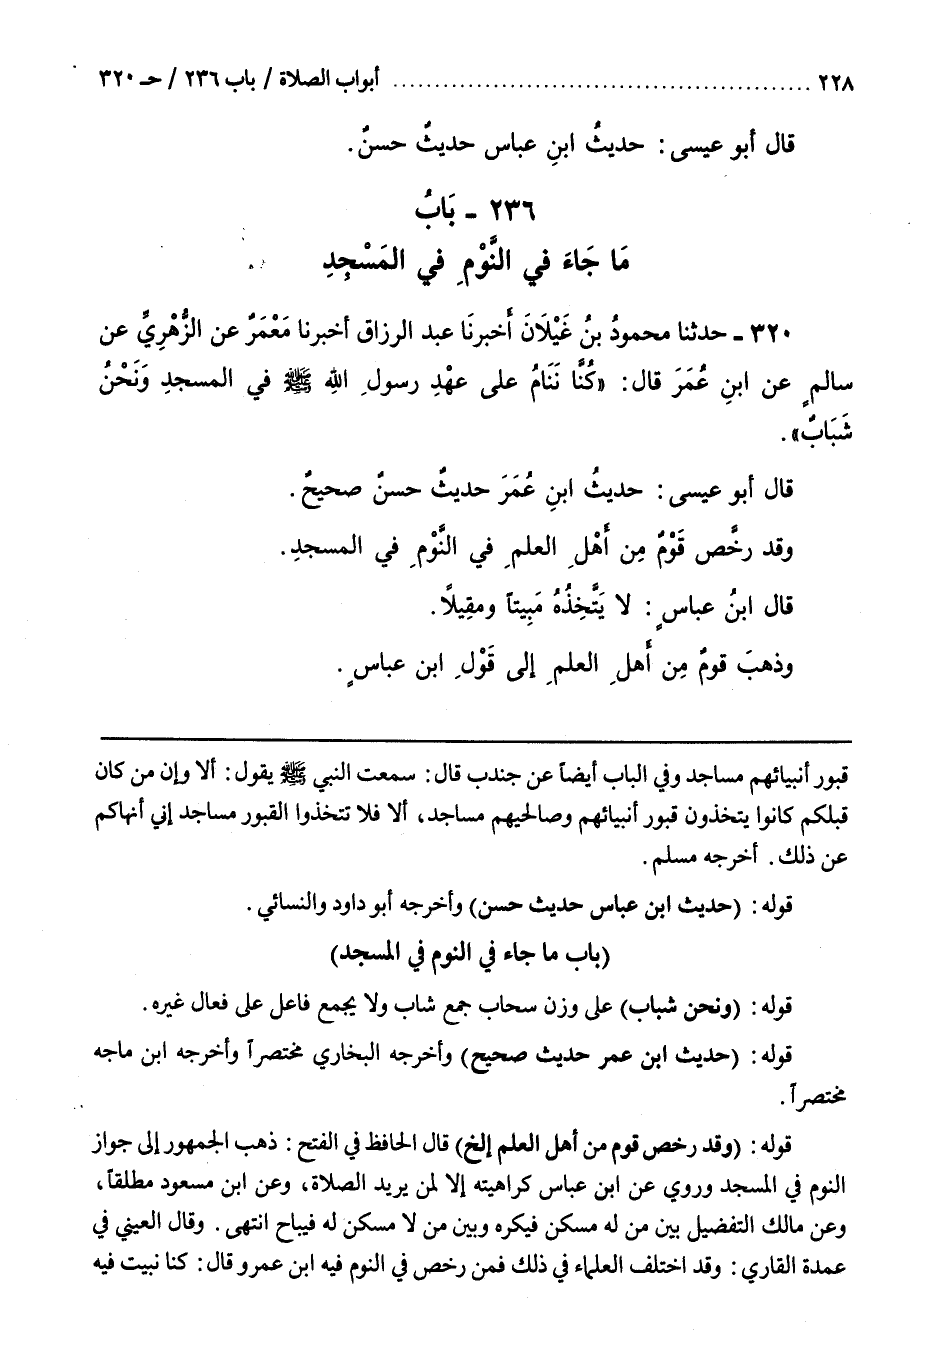 ٢٢٨ ........................................ أبواب الصلاة / باب ٢٣٦ / حـ ٣٢٠
قال أبو عيسى: حديثُ ابنِ عباس حديثٌ حسنٌ.
٢٣٦ - بَابُ
مَا جَاءَ في النَّوْمِ في المَسْجِدِ
٣٢٠ - حدثنا محمودُ بنُ غَيْلَانَ أَخبرنَا عبد الرزاق أخبرنا مَعْمَرٌ عن الزُّهْرِيِّ عن
سالمٍ عن ابنِ عُمَرَ قال: «كُنَّا نَنَامُ على عهْدِ رسولِ اللهِ ﷺ في المسجدِ وَنَحْنُ
شَبَابٌ».
قال أبو عيسى: حديثُ ابنِ عُمَرَ حديثٌ حسنٌ صحيحٌ.
وقد رخَّص قَوْمٌ مِن أَهْلِ العلمِ في النَّوْمِ في المسجدِ.
قال ابنُ عباسٍ: لا يَتَّخِذُهُ مَبِيتاً ومقِيلًا.
وذهبَ قومٌ مِن أَهلِ العلمِ إلى قَوْلِ ابن عباسٍ.
قبور أنبيائهم مساجد وفي الباب أيضاً عن جندب قال: سمعت النبي ﷺ يقول: ألا وإن من كان
قبلكم كانوا يتخذون قبور أنبيائهم وصالحيهم مساجد، ألا فلا تتخذوا القبور مساجد إني أنهاكم
عن ذلك. أخرجه مسلم.
قوله: (حديث ابن عباس حديث حسن) وأخرجه أبو داود والنسائي.
(باب ما جاء في النوم في المسجد)
قوله: (ونحن شباب) على وزن سحاب جمع شاب ولا يجمع فاعل على فعال غيره.
قوله: (حديث ابن عمر حديث صحيح) وأخرجه البخاري مختصراً وأخرجه ابن ماجه
مختصراً.
قوله: (وقد رخص قوم من أهل العلم إلخ) قال الحافظ في الفتح: ذهب الجمهور إلى جواز
النوم في المسجد وروي عن ابن عباس كراهيته إلا لمن يريد الصلاة، وعن ابن مسعود مطلقاً،
وعن مالك التفضيل بين من له مسكن فيكره وبين من لا مسكن له فيباح انتهى. وقال العيني في
عمدة القاري: وقد اختلف العلماء في ذلك فمن رخص في النوم فيه ابن عمرو قال: كنا نبيت فيه